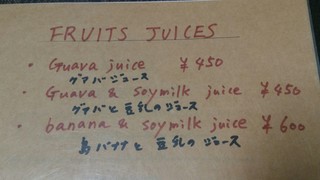 FRUITS JUICES
• Guava juice ¥450
グアバジュース
• Guava & soymilk juice ¥450
グアバと豆乳のジュース
• banana & soymilk juice ¥600
島バナナと豆乳のジュース